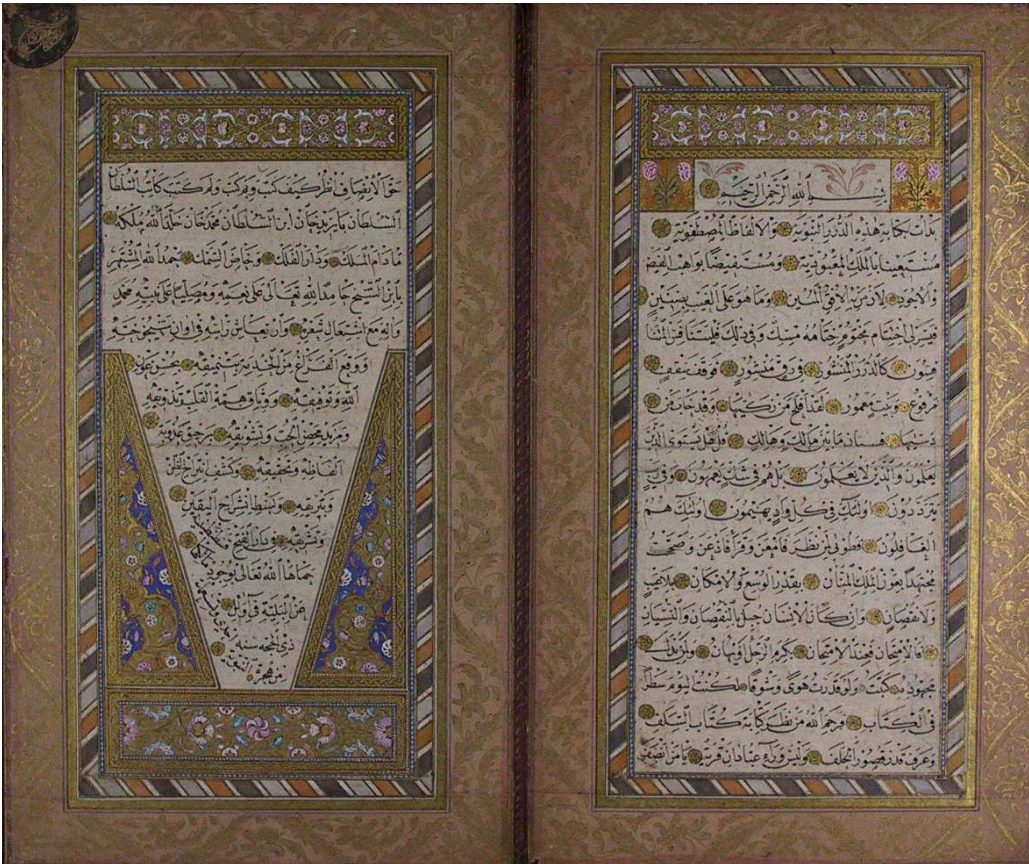 بسم الله الرحمن الرحيم
بدأت بكتابة هذه الدرر النبوية والالفاظ المصطفوية
مستعينا بالملك المعبود ومستفيضا بواهب الفيض
والجود لازمة الافق المبين وما هو على الغيب بضنين
فيسر لي اختتام مختوم ختامه مسك وفي ذلك فليتنافس المتنا
فسون كالدرر المنثور في رق منشور فوقف سقف
مرفوع وبيت معمور لقد افلح من زكيها وقد خاب من
دسيها فستان ما بين مالك وهالك قل هل يستوي الذين
يعلمون والذين لا يعلمون بل هم في شك يعمهون وفي ريب
يترددون اولئك في كل واد يهيمون اولئك هم
الغافلون فطوبى لمن نظر فامعن وقرأ فاذعن وصححت
مجتهدا بعون الملك المنان بقدر الوسع والامكان بلا تعب
ولا نقصان وان كان الانسان جبل بالنقصان والنسيان
فالامتحان فعند الامتحان يكرم الرجل او يهان ولئن بذلت
مجهود كنت ولو قدرت هوى وشوقا لكنت اليوم سطرا
في الكتاب ورحم الله من نظر كتابة كتاب السلف
وعرف قدر قصور الخلف وليس وراء عبادان قرية يا من انصف
حق الانصاف انظر كيف كتب وبم كتب ولم كتب كاتب السلطان
السلطان بايزيد خان ابن السلطان محمد خان خلد الله ملكه
ما دام الملك ودار الفلك وخاض السمك حمد الله المشتهر
بابن الشيخ حامدا لله تعالى على نعمه ومصليا على نبيه محمد
وآله مع اشتعال شعره وارتعاش راسه في اوان شيخوخته
ووقع الفراغ من تنميقه بحسن عون
الله وتوفيقه ووفاق همة القلب وتذويقه
ومزيد محض الحب وتشويقه برحيق عذوبة
الفاظه وتحقيقه وكشف
وتزييفه وبسط انشراح اليقين
وتشريفه في دار الفتح
حماها الله تعالى بوجوده
من البلية في اوائل
ذي الحجة سنة
من هجرة النبوية